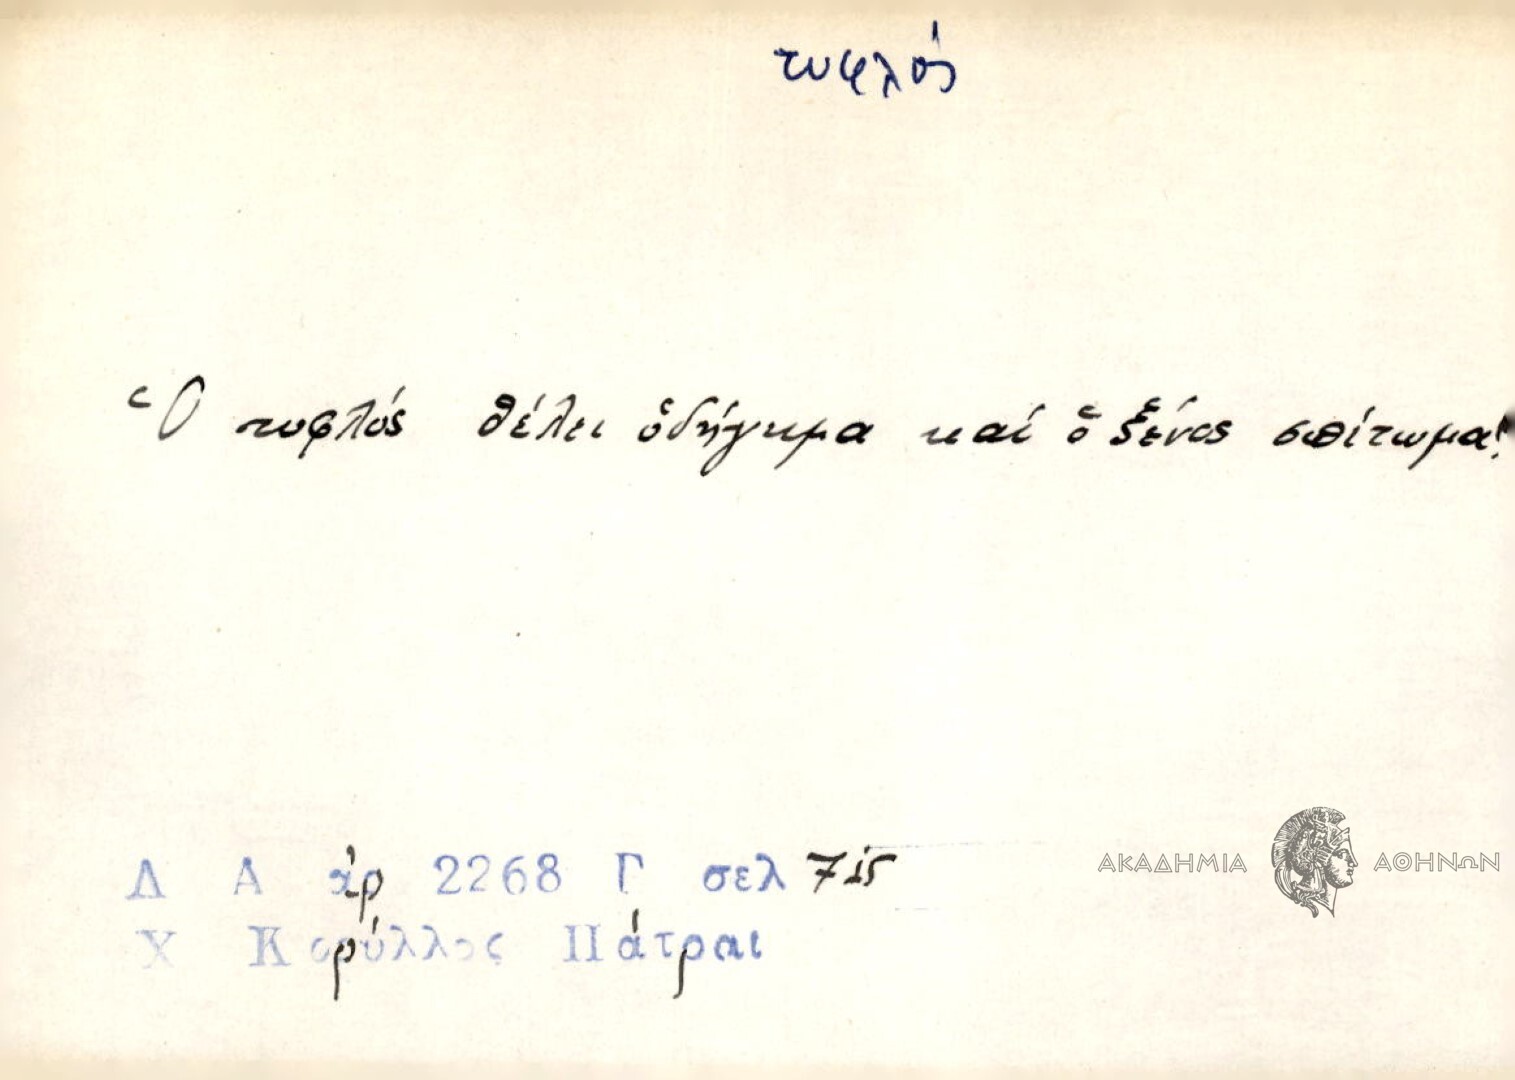 τυφλός
Ὁ τυφλός θέλει ὁδήγημα καί ὁ ξένος σπίτωμα!
Λ Α ἀρ 2268 Γ σελ
ΑΚΑΔΗΜΙΑ ΑΘΗΝΩΝ
Χ Κορύλλος Πάτραι